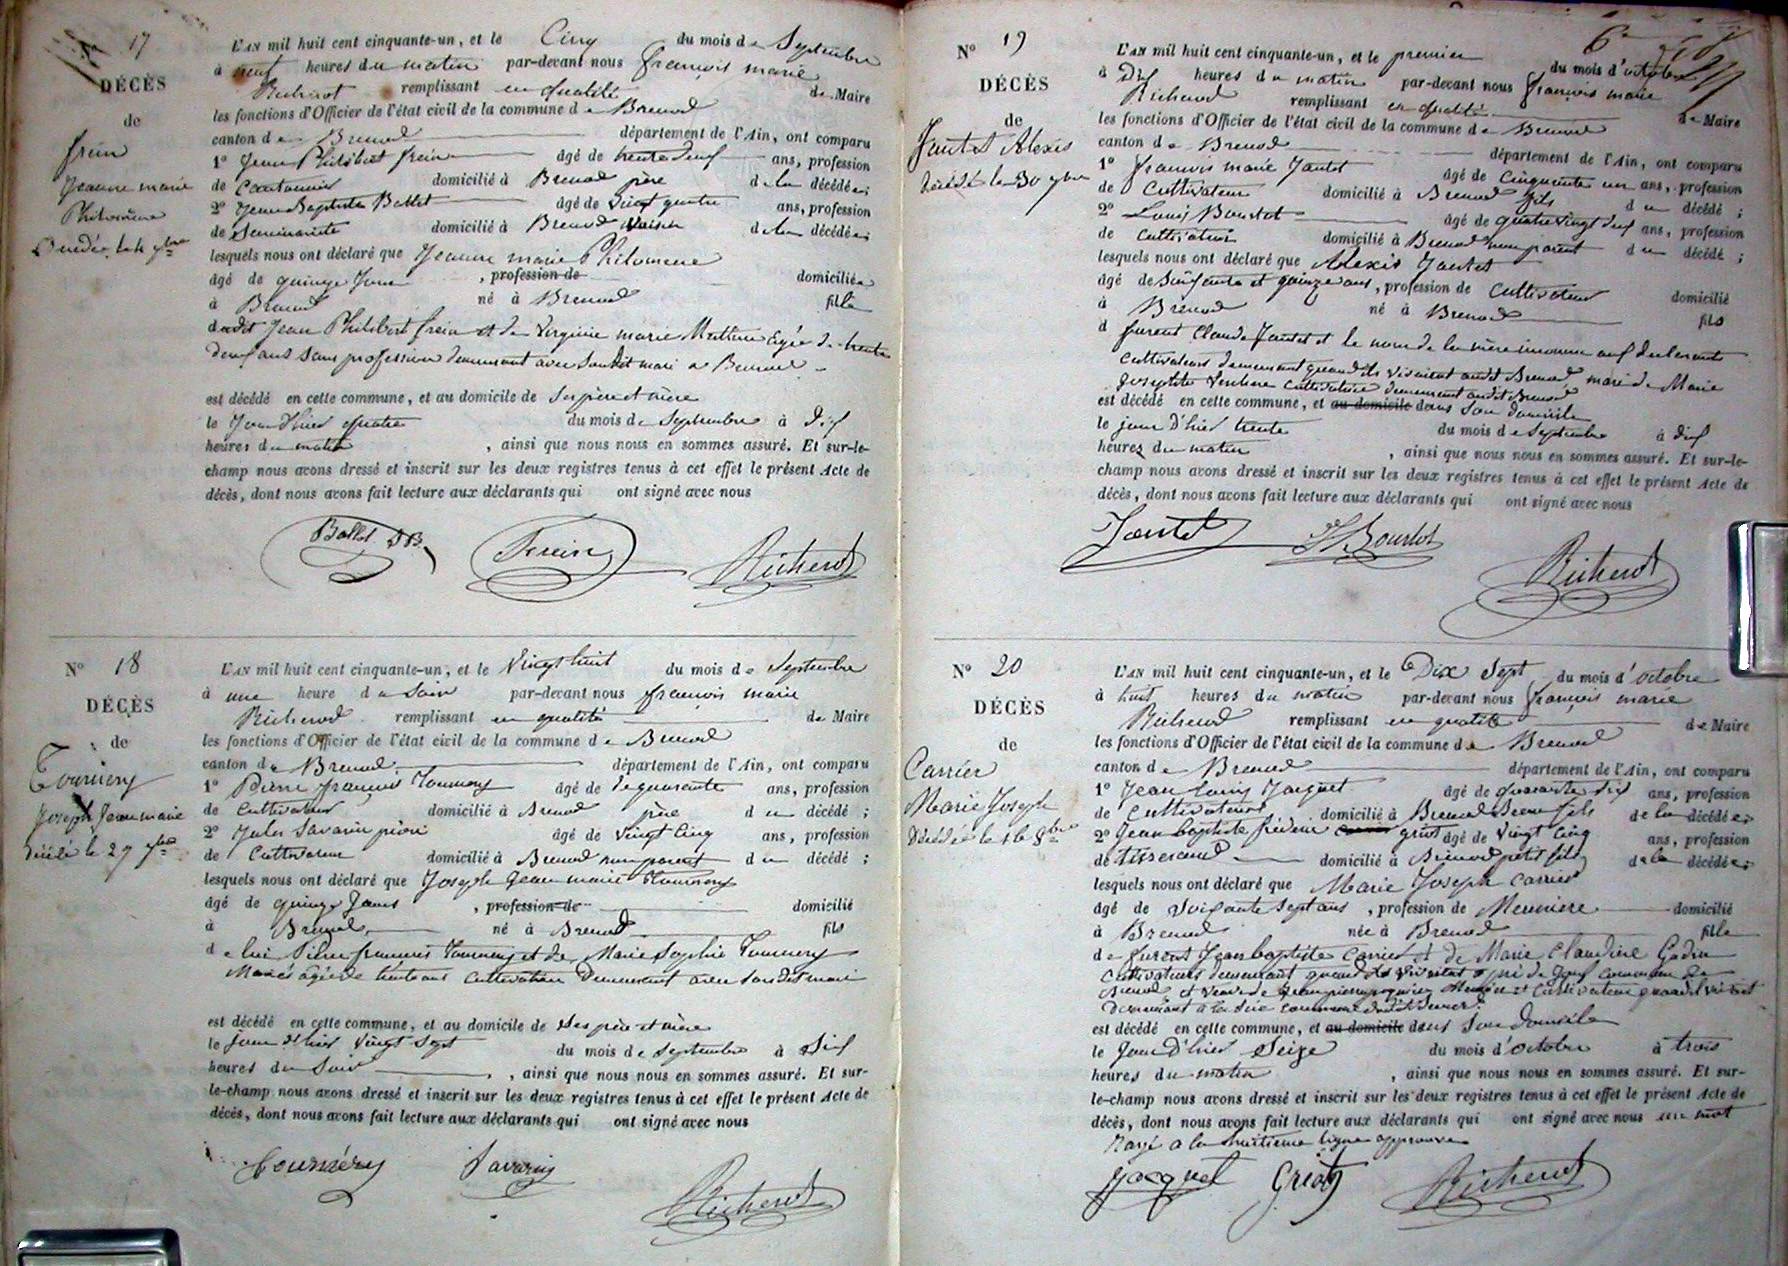 17
DÉCÈS
de
frein
Jeanne marie
Philomène
Décédée le 4 7bre
L'AN mil huit cent cinquante-un, et le Cinq du mois de Septembre
à neuf heures du matin par-devant nous françois marie
Richerot remplissant en qualité de Maire
les fonctions d'Officier de l'état civil de la commune de Brenod
canton de Brenod département de l'Ain, ont comparu
1° Jean Philibert frein âgé de trente deux ans, profession
de Cantonnier domicilié à Brenod père de la décédée;
2° Jean Baptiste Ballet âgé de vingt quatre ans, profession
de Séminariste domicilié à Brenod voisin de la décédée;
lesquels nous ont déclaré que Jeanne marie Philomene
âgé de quinze jours , profession de domiciliée
à Brenod né à Brenod fille
dudit Jean Philibert frein et de Virginie marie âgée de trente
deux ans sans profession demeurant avec sondit mari a Brenod
est décédé en cette commune, et au domicile de ses père et mère
le jour d'hier quatre du mois de Septembre à Dix
heures du matin , ainsi que nous nous en sommes assuré. Et sur-le-
champ nous avons dressé et inscrit sur les deux registres tenus à cet effet le présent Acte de
décès, dont nous avons fait lecture aux déclarants qui ont signé avec nous
Ballet Frein Richerot
N° 18
DÉCÈS
de
Tournery
Joseph Jean marie
Décédé le 27 7bre
L'AN mil huit cent cinquante-un, et le Vingt huit du mois de Septembre
à une heure du Soir par-devant nous françois marie
Richerot remplissant en qualité de Maire
les fonctions d'Officier de l'état civil de la commune de Brenod
canton de Brenod département de l'Ain, ont comparu
1° Pierre françois Tournery âgé de quarante ans, profession
de Cultivateur domicilié à Brenod père du décédé ;
2° Jules Savarin âgé de Vingt Cinq ans, profession
de Cultivateur domicilié à Brenod non parent du décédé ;
lesquels nous ont déclaré que Joseph Jean marie Tournery
âgé de quinze jours , profession de domicilié
à Brenod né à Brenod fils
de lui Pierre françois Tournery et de Marie Sophie Tournery
Mariés âgée de trente ans Cultivatrice Demeurant avec son dit mari
est décédé en cette commune, et au domicile de ses père et mère
le jour d'hier Vingt Sept du mois de Septembre à Six
heures du Soir , ainsi que nous nous en sommes assuré. Et sur-
le-champ nous avons dressé et inscrit sur les deux registres tenus à cet effet le présent Acte de
décès, dont nous avons fait lecture aux déclarants qui ont signé avec nous
Tournéry Savarin Richerot
N° 19
DÉCÈS
de
Jantet Alexis
Décédé le 30 7bre
L'AN mil huit cent cinquante-un, et le premier du mois d'octobre
à Dix heures du matin par-devant nous françois marie
Richerot remplissant en qualité de Maire
les fonctions d'Officier de l'état civil de la commune de Brenod
canton de Brenod département de l'Ain, ont comparu
1° françois marie Jantet âgé de Cinquante un ans, profession
de Cultivateur domicilié à Brenod fils du décédé ;
2° Louis Bourlot âgé de quatre vingt dix ans, profession
de Cultivateur domicilié à Brenod non parent du décédé ;
lesquels nous ont déclaré que Alexis Jantet
âgé de soixante et quinze ans, profession de Cultivateur domicilié
à Brenod né à Brenod fils
d furent Claude Jantet et le nom de la mère inconnu aux declarants
Cultivateurs demeurant quand ils vivaient audit Brenod mari de Marie
Josephte Cultivatrice demeurant audit Brenod
est décédé en cette commune, et au domicile dans Son domicile
le jour d'hier trente du mois de Septembre à dix
heures du matin , ainsi que nous nous en sommes assuré. Et sur-le-
champ nous avons dressé et inscrit sur les deux registres tenus à cet effet le présent Acte de
décès, dont nous avons fait lecture aux déclarants qui ont signé avec nous
Jantet Bourlot Richerot
N° 20
DÉCÈS
de
Carrier
Marie Joseph
Décédée le 16 8bre
L'AN mil huit cent cinquante-un, et le Dix Sept du mois d'octobre
à huit heures du matin par-devant nous françois marie
Richerot remplissant en qualité de Maire
les fonctions d'Officier de l'état civil de la commune de Brenod
canton de Brenod département de l'Ain, ont comparu
1° Jean Louis Jacquet âgé de quarante six ans, profession
de Cultivateur domicilié à Brenod Beau fils de la décédée;
2° Jean baptiste fréderic griot âgé de Vingt Cinq ans, profession
de tisserand domicilié à Brenod petit fils de la décédée;
lesquels nous ont déclaré que Marie Joseph Carrier
âgé de Soixante Sept ans , profession de Meunière domicilié
à Brenod née à Brenod fille
de furent Jean baptiste Carrier et de Marie Claudine
Cultivateurs demeurant quand ils vivaient commune de
Brenod et Veuve de Meunier et Cultivateur quand il vivait
Demeurant à la Scie commune
est décédé en cette commune, et au domicile dans Son Domicile
le Jour d'hier Seize du mois d'octobre à trois
heures du matin , ainsi que nous nous en sommes assuré. Et sur-
le-champ nous avons dressé et inscrit sur les deux registres tenus à cet effet le présent Acte de
décès, dont nous avons fait lecture aux déclarants qui ont signé avec nous un mot
Rayé a la huitieme ligne approuvé
Jacquet Griot Richerot